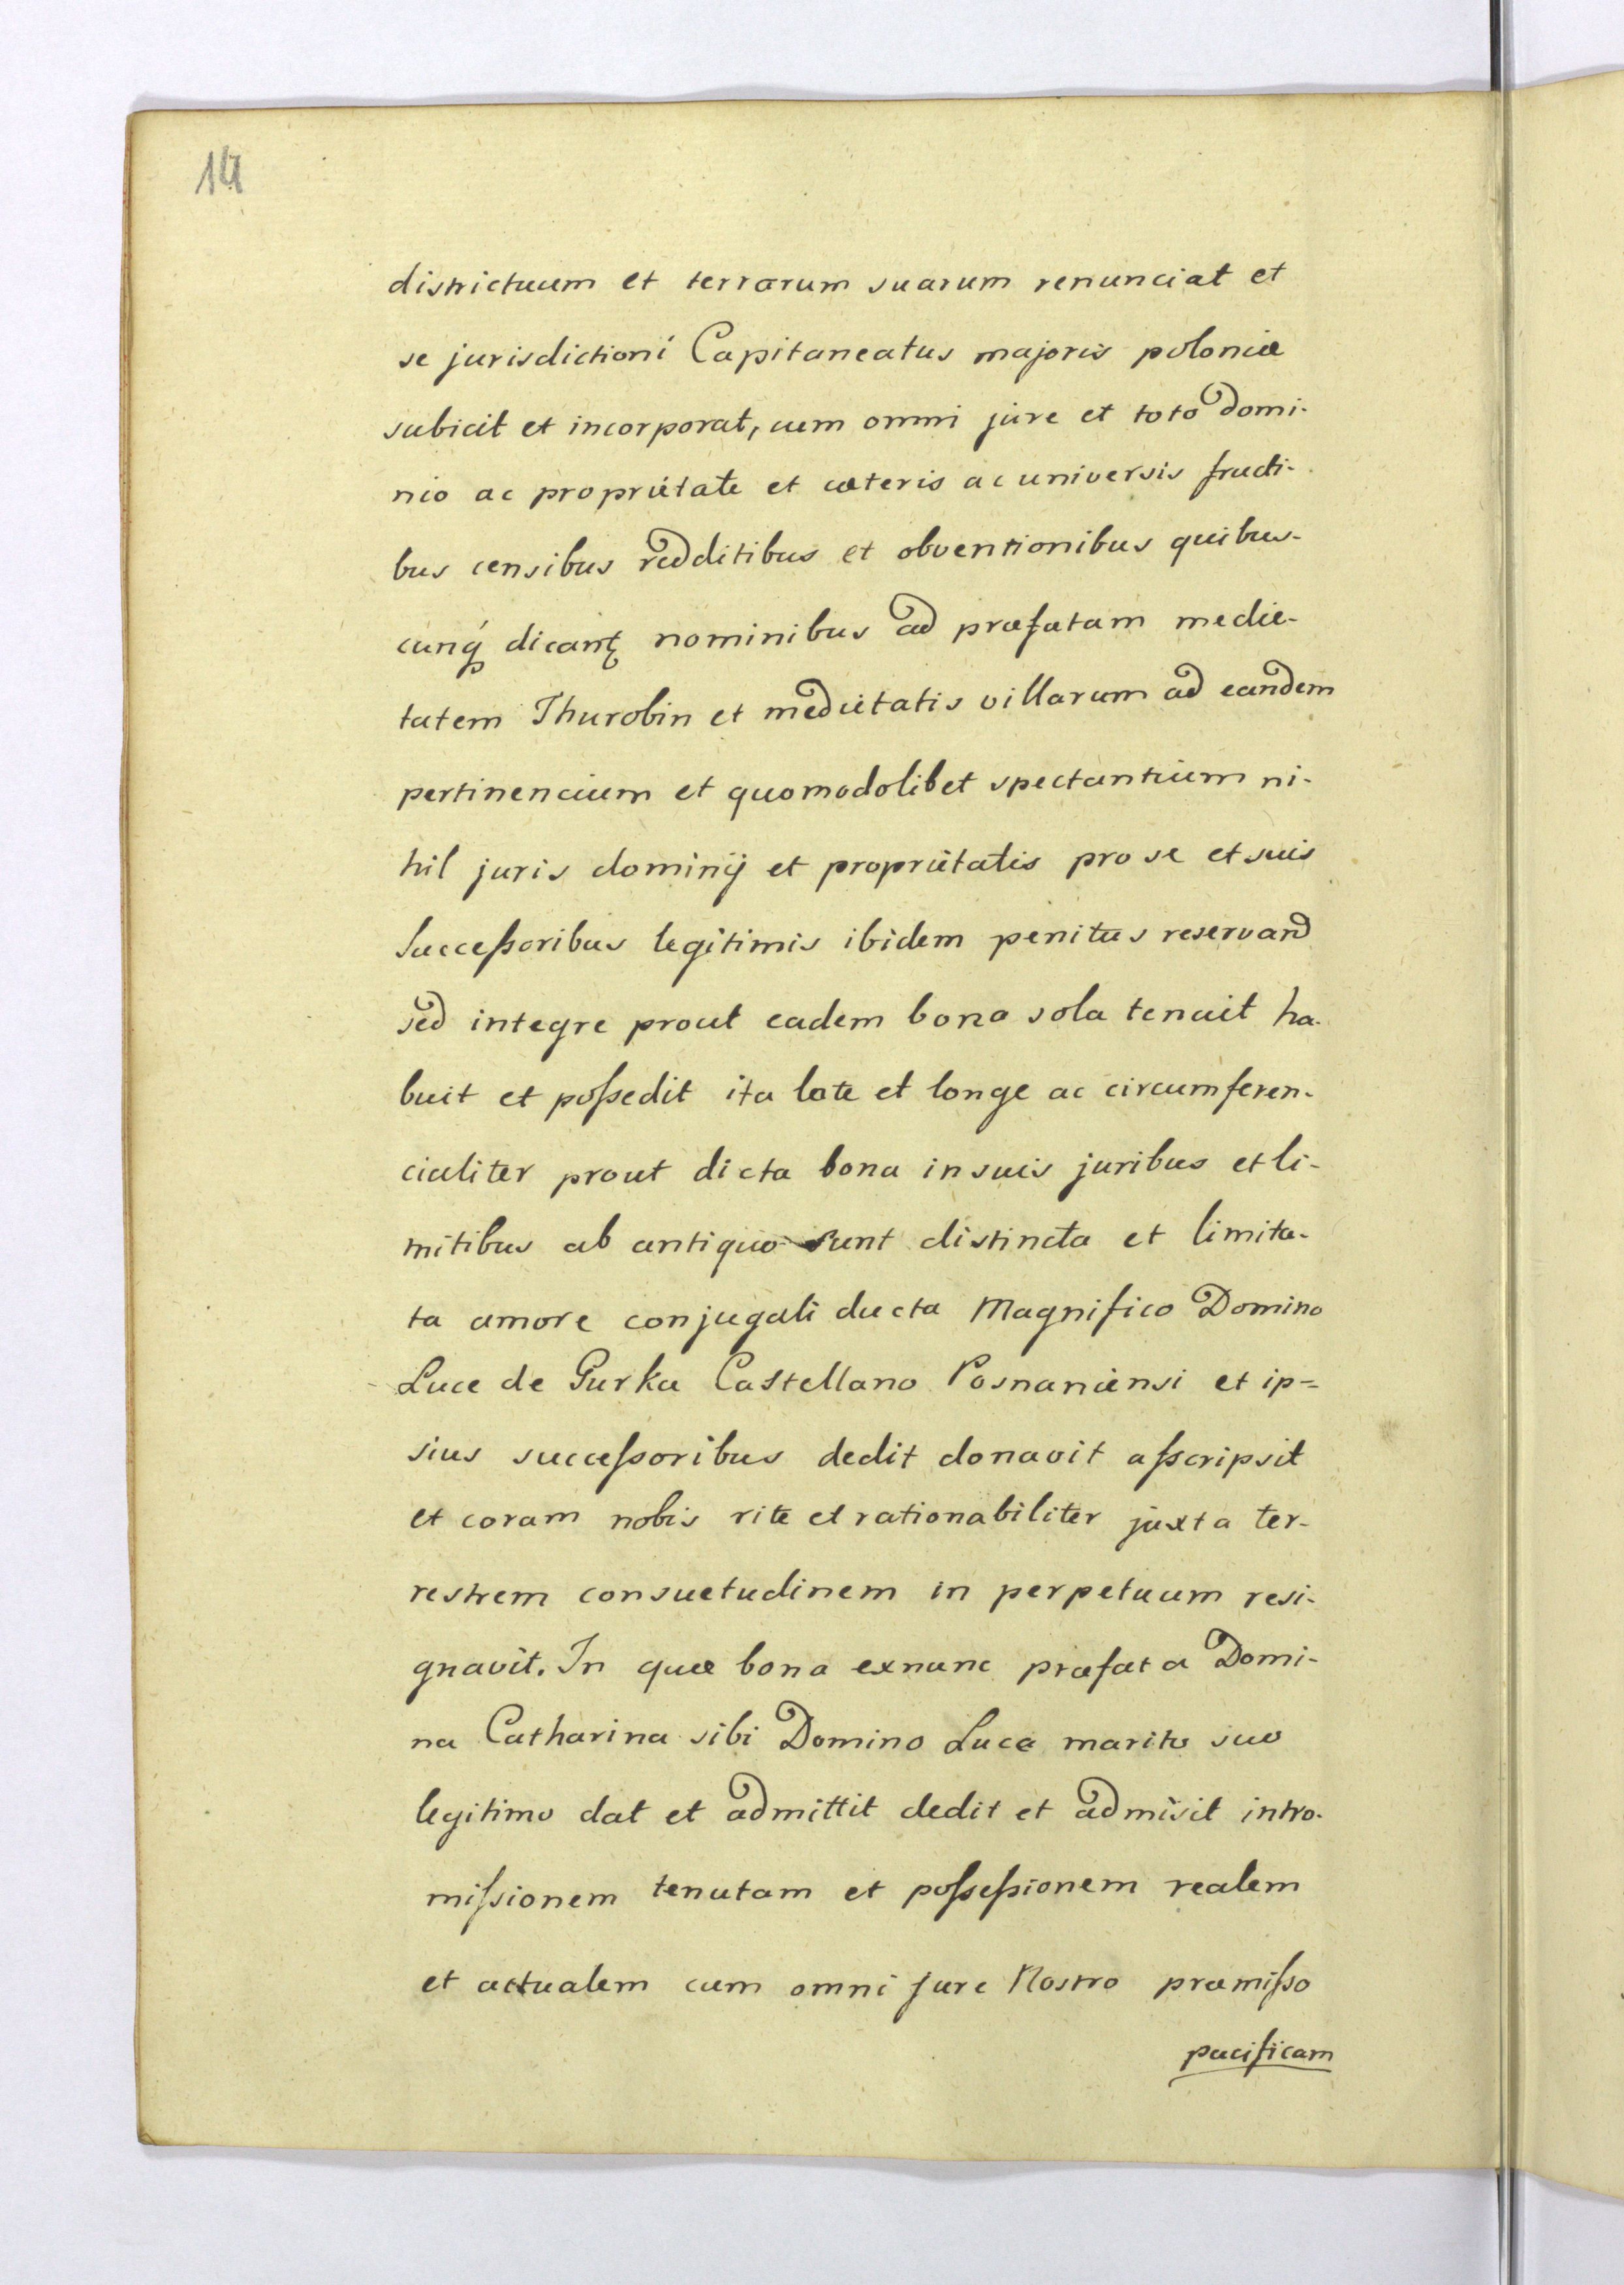 14
districtuum et terrarum suarum renunciat et
se jurisdictioni Capitaneatus majoris poloniæ
subicit et incorporat, cum omni jure et toto domi-
nio ac proprietate et cæteris ac universis fructi-
bus censibus redditibus et obventionibus quibus-
cunq dicant nominibus ad præfatam medie-
tatem Thurobin et medietatis villarum ad eandem
pertinencium et quomodolibet spectantium ni-
hil juris dominij et proprietatis pro se et suis
Succeſsoribus legitimis ibidem penitus reservand
sed integre prout eadem bona sola tenuit ha-
buit et poſsedit ita late et longe ac circumferen-
cialiter prout dicta bona in suis juribus et li-
mitibus ab antiquo sunt distincta et limita-
ta amore conjugali ducta Magnifico Domino
Luce de Gurka Castellano Posnaniensi et ip=
sius succeſsoribus dedit donavit aſscripsit
et coram nobis rite et rationabiliter juxta ter-
restrem consuetudinem in perpetuum resi-
gnavit. In quæ bona exnunc præfata Domi-
na Catharina sibi Domino Luce marito suo
legitimo dat et admittit dedit et admisit intro-
miſsionem tenutam et poſseſsionem realem
et actualem cum omni jure Nostro præmiſso
pacificam